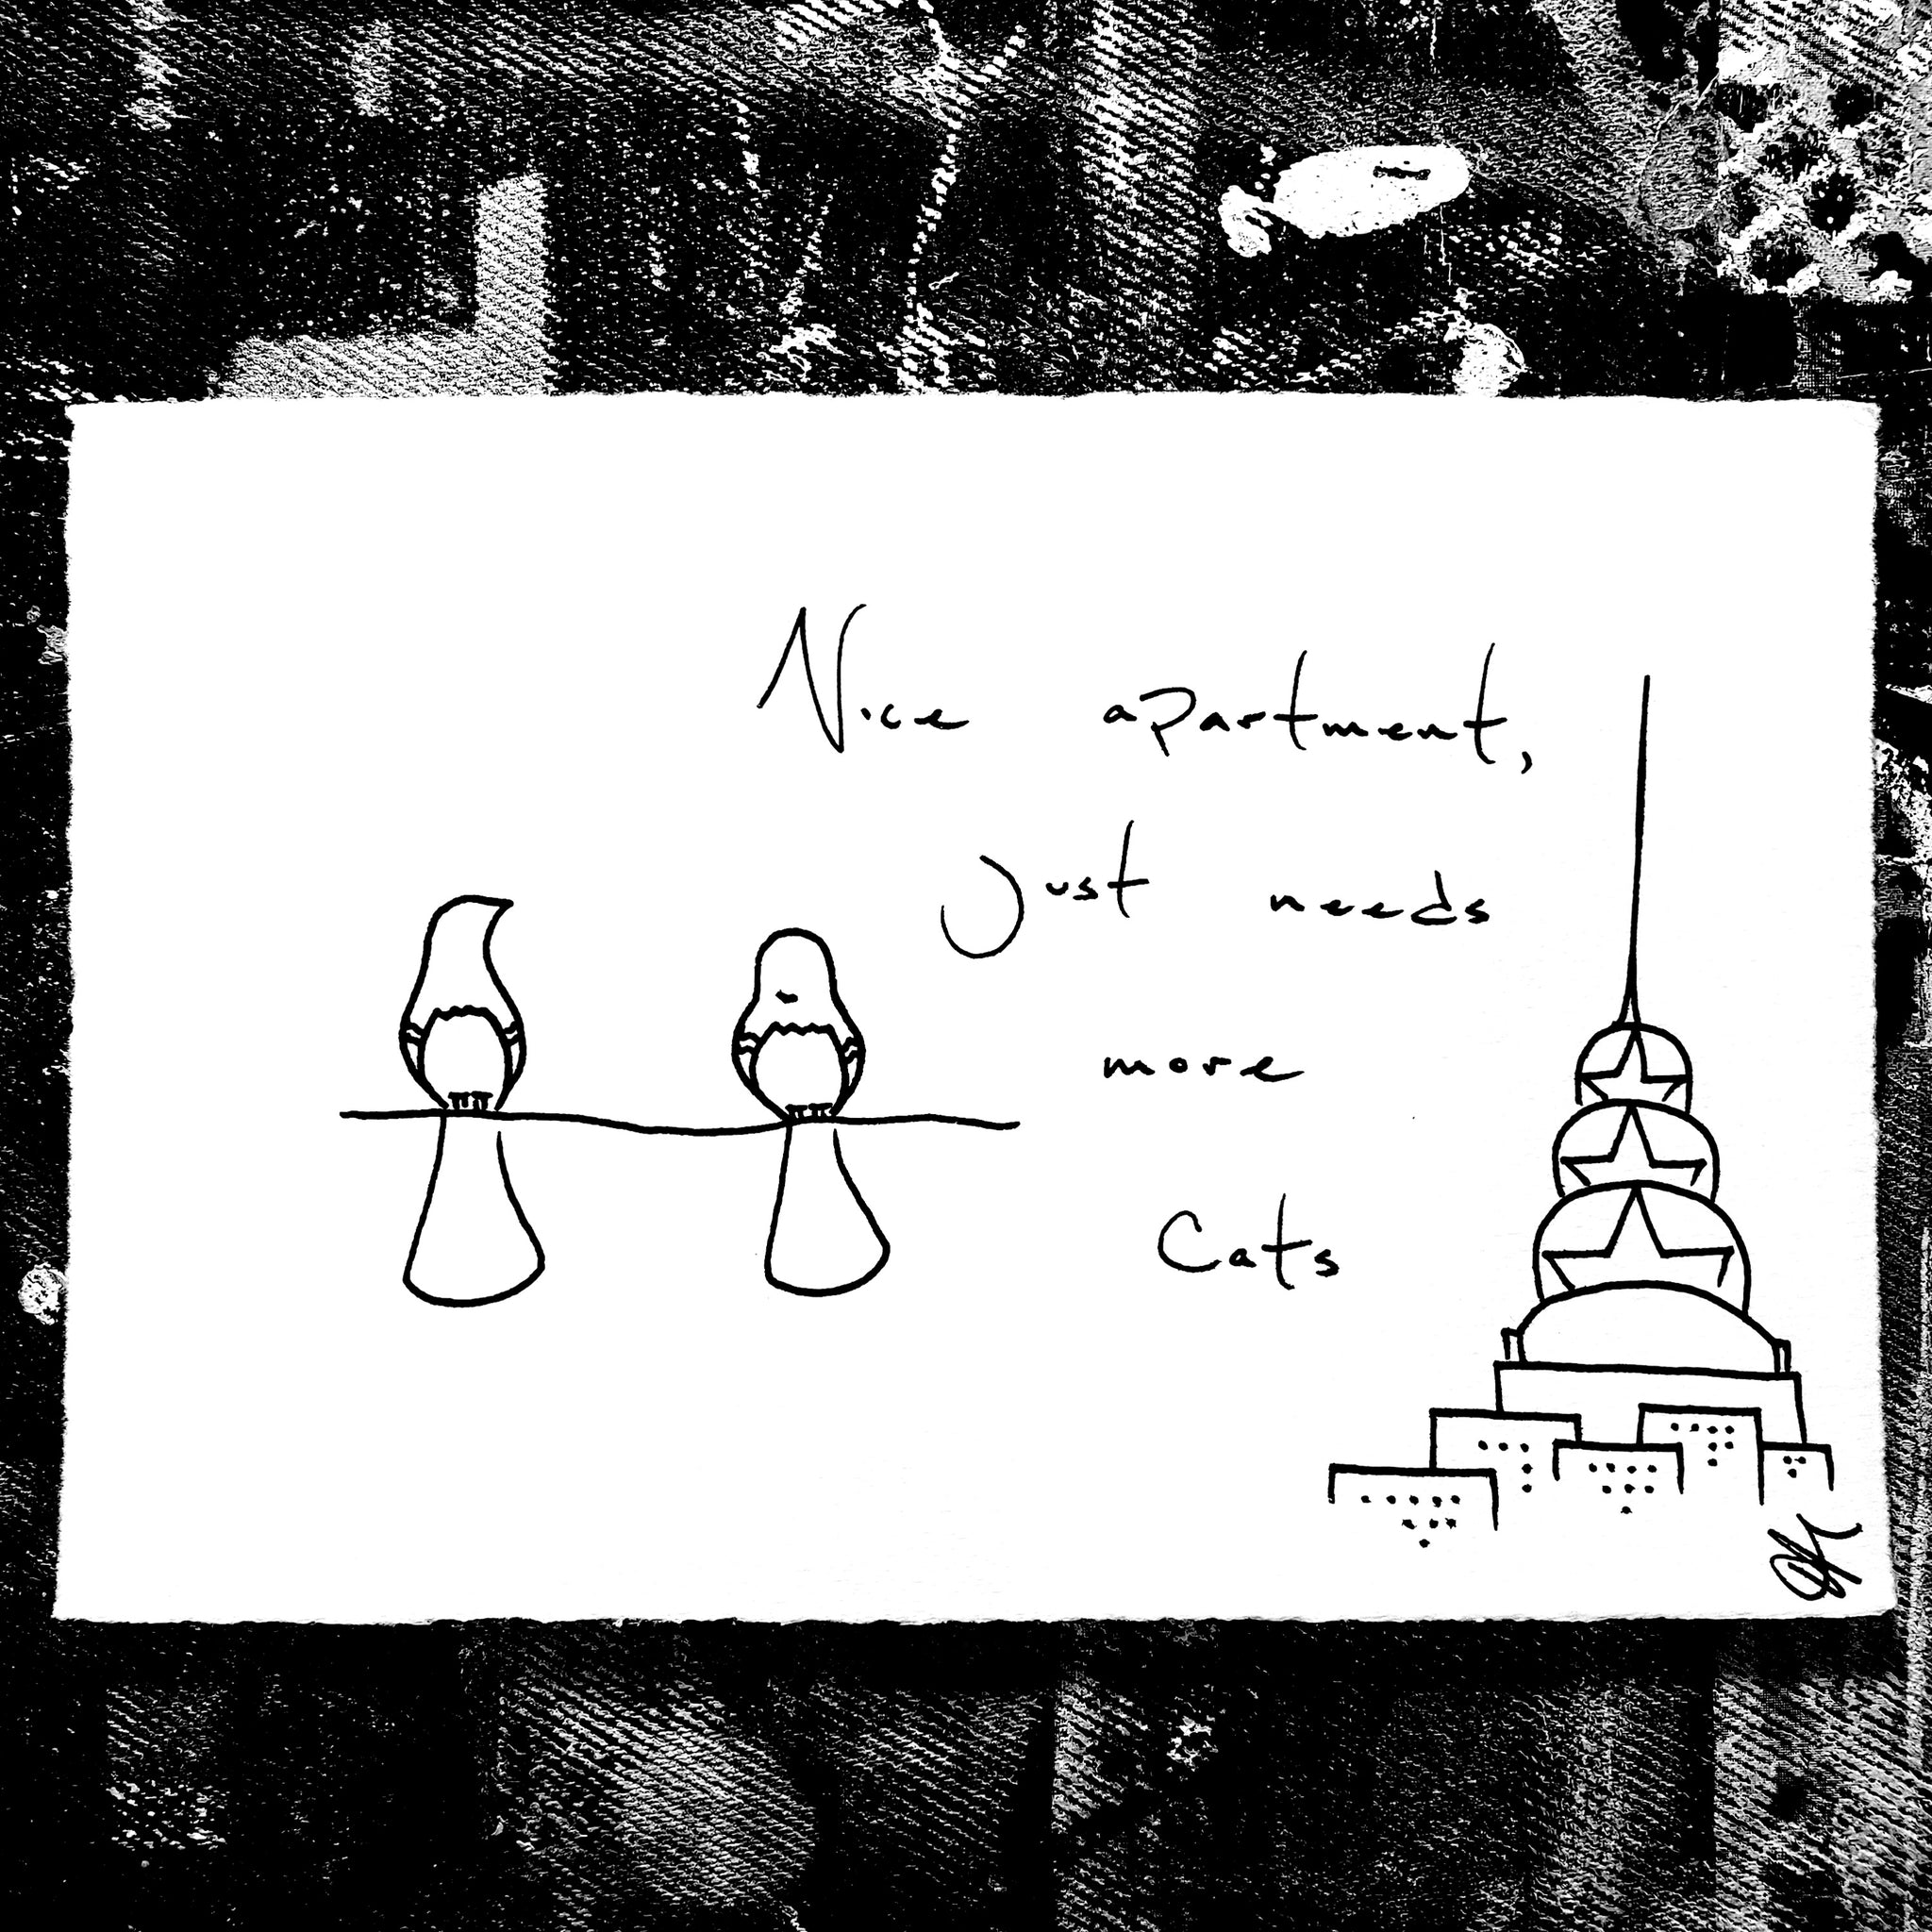 Nice apartment,
Just needs
more
Cats